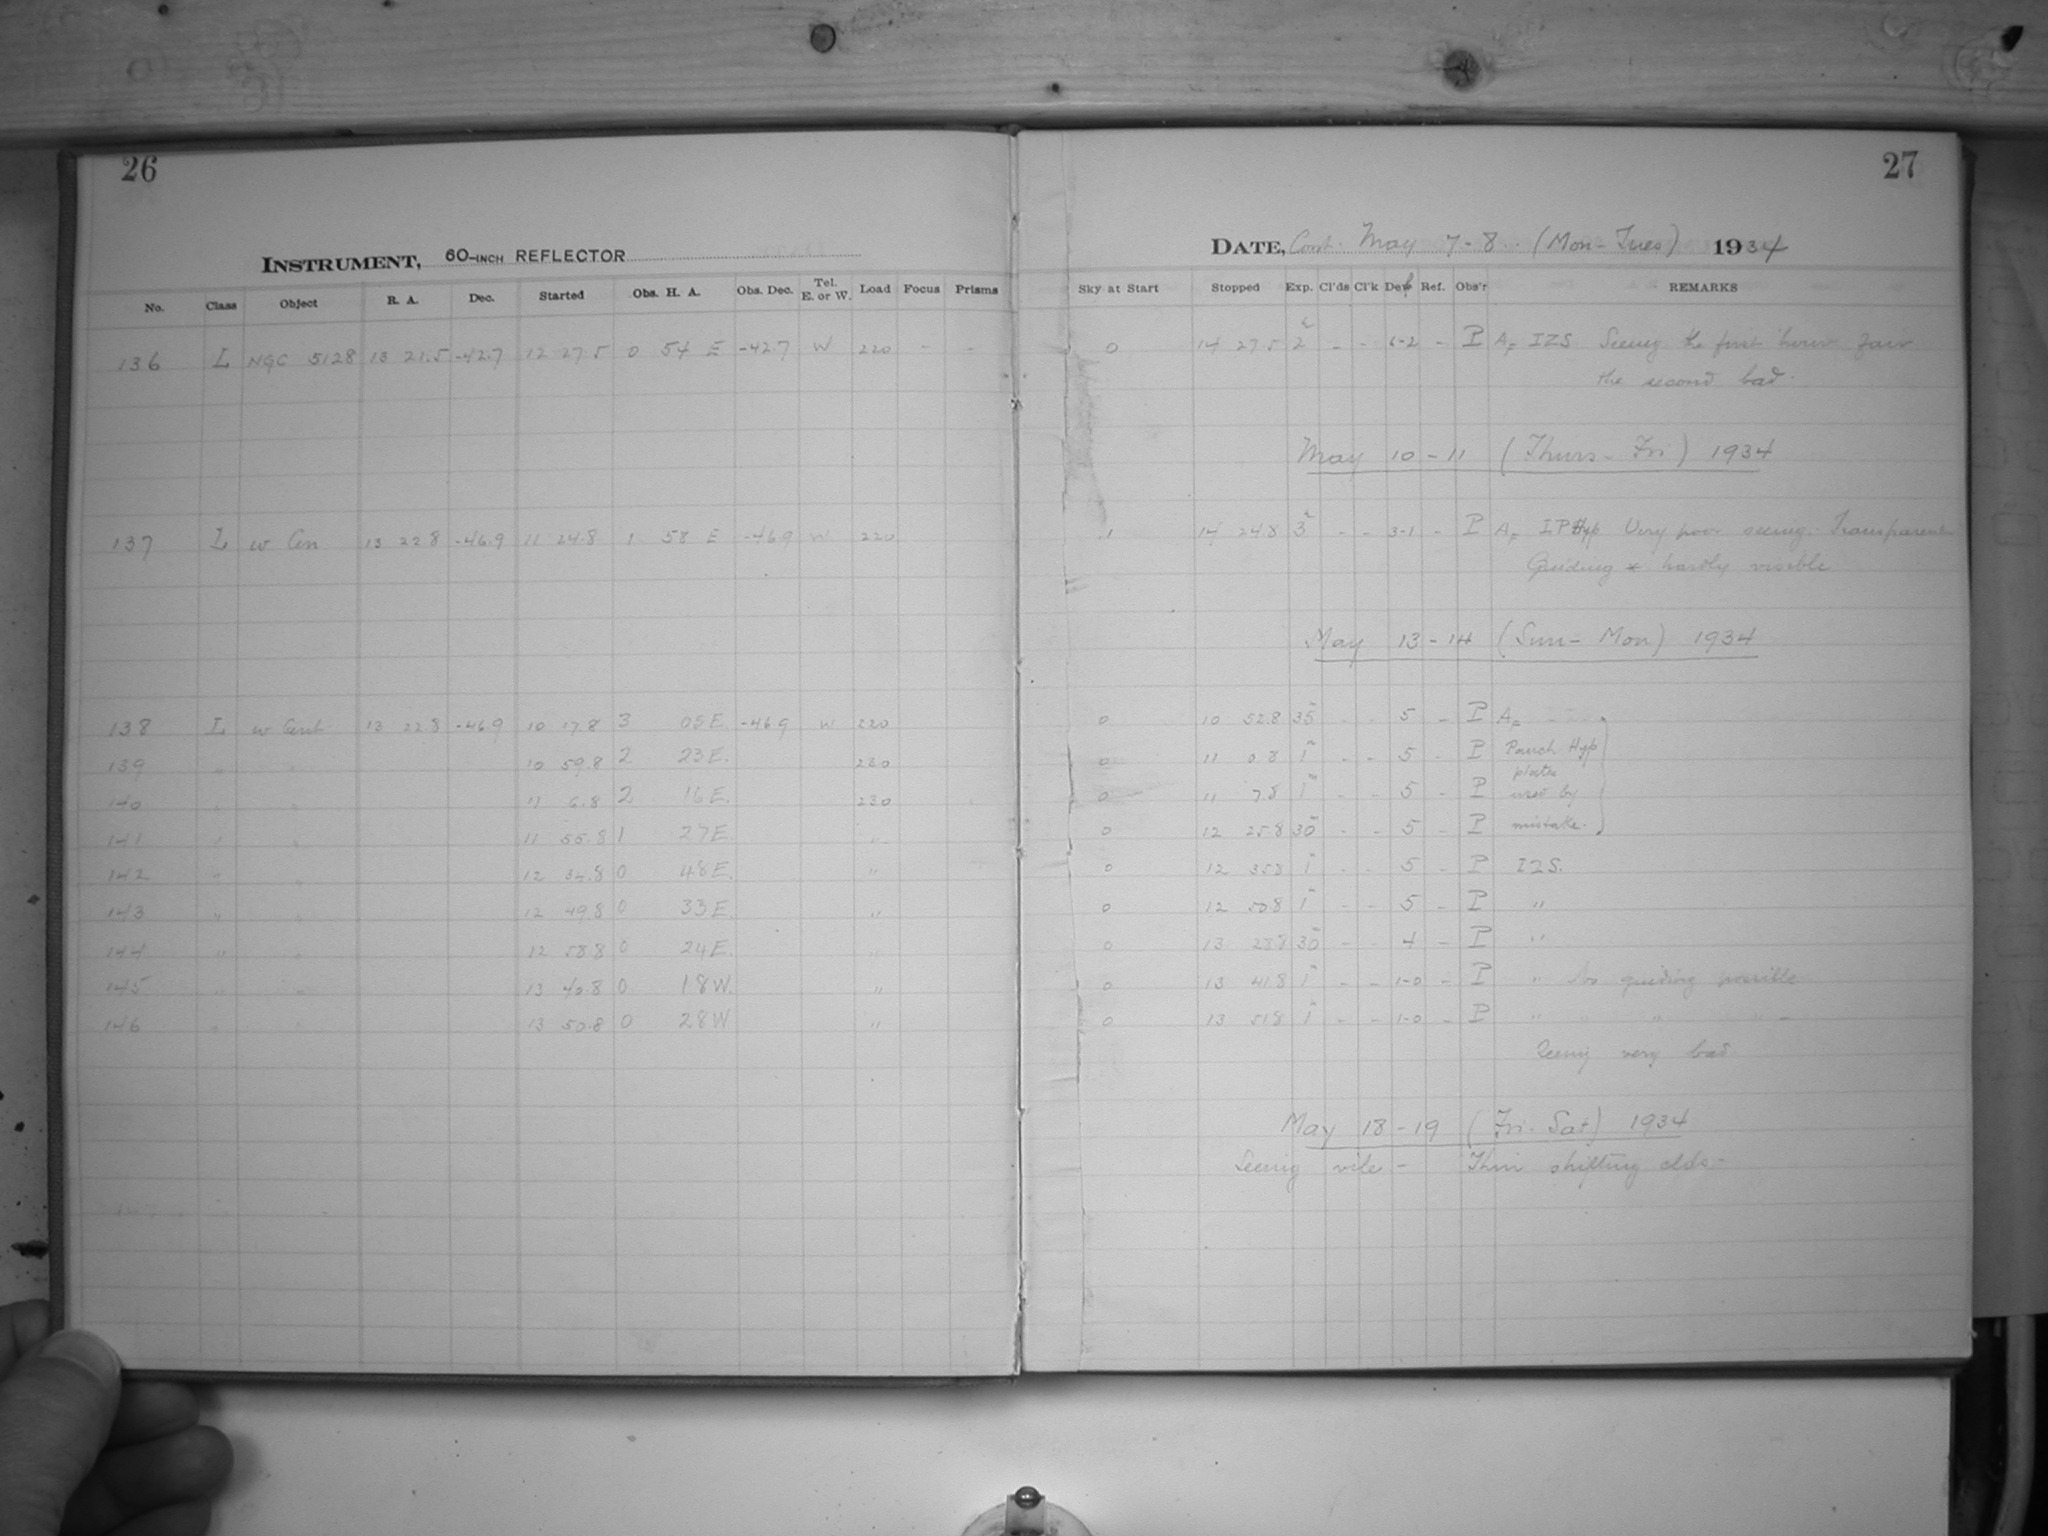 26
INSTRUMENT, 60-INCH REFLECTOR
No. Class Object R. A. Dec. Started Obs. H. A. Obs. Dec. Tel. E. or W. Load Focus Prisms
136 L NGC 5128 13 21.5 -42.7 12 27.5 0 54 E -42.7 W 220 - -
137 L w Cen 13 22.8 -46.9 11 24.8 1 58 E -46.9 W 220
138 L w Cent 13 22.8 -46.9 10 17.8 3 05 E. -46.9 W 220
139 " " 10 59.8 2 23 E. 230
140 " " 11 6.8 2 16 E. 230
141 " " 11 55.8 1 27 E. "
142 " " 12 34.8 0 48 E. "
143 " " 12 49.8 0 33 E. "
144 " " 12 58.8 0 24 E. "
145 " " 13 40.8 0 18 W. "
146 " " 13 50.8 0 28 W "
27
DATE, Cont. May 7-8. (Mon-Tues) 1934
Sky at Start Stopped Exp. Cl'ds Cl'k Dew Ref. Obs'r REMARKS
0 14 27.5 2 - - -2 - P AF IZS Seeing the first hour fair
the second bad.
May 10-11 (Thurs-Fri) 1934
1 14 24.8 3 - - 3-1 - P AF IP Hyp Very poor seeing. Transparent
Guiding * hardly visible
May 13-14 (Sun-Mon) 1934
0 10 52.8 35 - - 5 - P AF
0 11 0.8 1 - - 5 - P Panch Hyp
plates
0 11 7.8 1 - - 5 - P used by
0 12 25.8 30 - - 5 - P mistake.
0 12 35.8 1 - - 5 - P IZS.
0 12 50.8 1 - - 5 - P "
0 13 28.8 30 - - 4 - P "
0 13 41.8 1 - - 1-0 - P " No guiding possible
0 13 51.8 1 - - 1-0 - P " " " " -
Seeing very bad
May 18-19 (Fri-Sat) 1934
Seeing vile - Thin shifting clds-